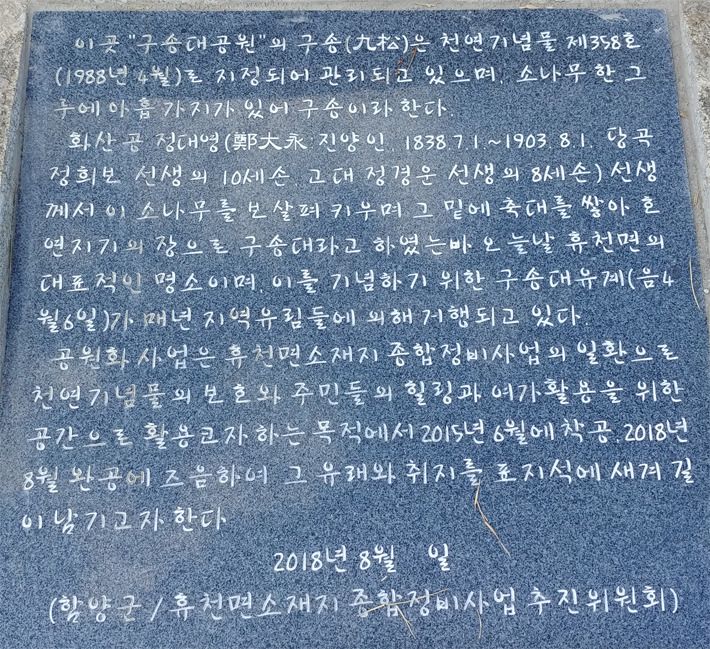 이곳 "구송대공원"의 구송(九松)은 천연기념물 제358호
(1988년 4월)로 지정되어 관리되고 있으며, 소나무 한 그
루에 아홉 가지가 있어 구송이라 한다.
화산공 정대영(鄭大永:진양인, 1838.7.1~1903.8.1. 당곡
정희보 선생의 10세손, 고대 정경운 선생의 8세손) 선생
께서 이 소나무를 보살펴 키우며 그 밑에 축대를 쌓아 호
연지기의 장으로 구송대라고 하였는바 오늘날 휴천면의
대표적인 명소이며, 이를 기념하기 위한 구송대유계(음4
월6일)가 매년 지역유림들에 의해 거행되고 있다.
공원화 사업은 휴천면소재지 종합정비사업의 일환으로
천연기념물의 보호와 주민들의 힐링과 여가활용을 위한
공간으로 활용코자하는 목적에서 2015년 6월에 착공, 2018년
8월 완공에 즈음하여 그 유래와 취지를 표지석에 새겨 길
이 남기고자 한다
2018년 8월 일
(함양군 / 휴천면소재지 종합정비사업 추진위원회)